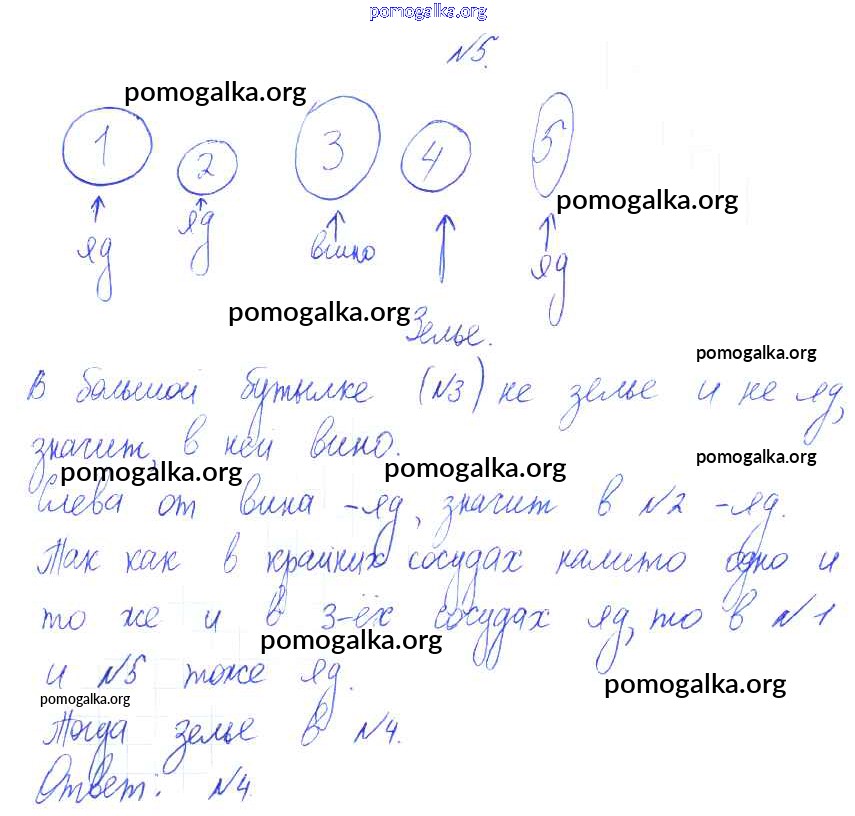 pomogalka.org
№5.
pomogalka.org
1 2 3 4 5
pomogalka.org
яд яд вино яд
pomogalka.org
Зелье.
pomogalka.org
В большой бутылке (№3) не зелье и не яд,
значит, в ней вино.
pomogalka.org
pomogalka.org pomogalka.org
Слева от вина - яд, значит в №2 - яд.
Так как в крайних сосудах налито одно и
то же и в 3-ёх сосудах яд, то в №1
pomogalka.org
и №5 тоже яд.
pomogalka.org
pomogalka.org
Тогда зелье в №4.
Ответ: №4